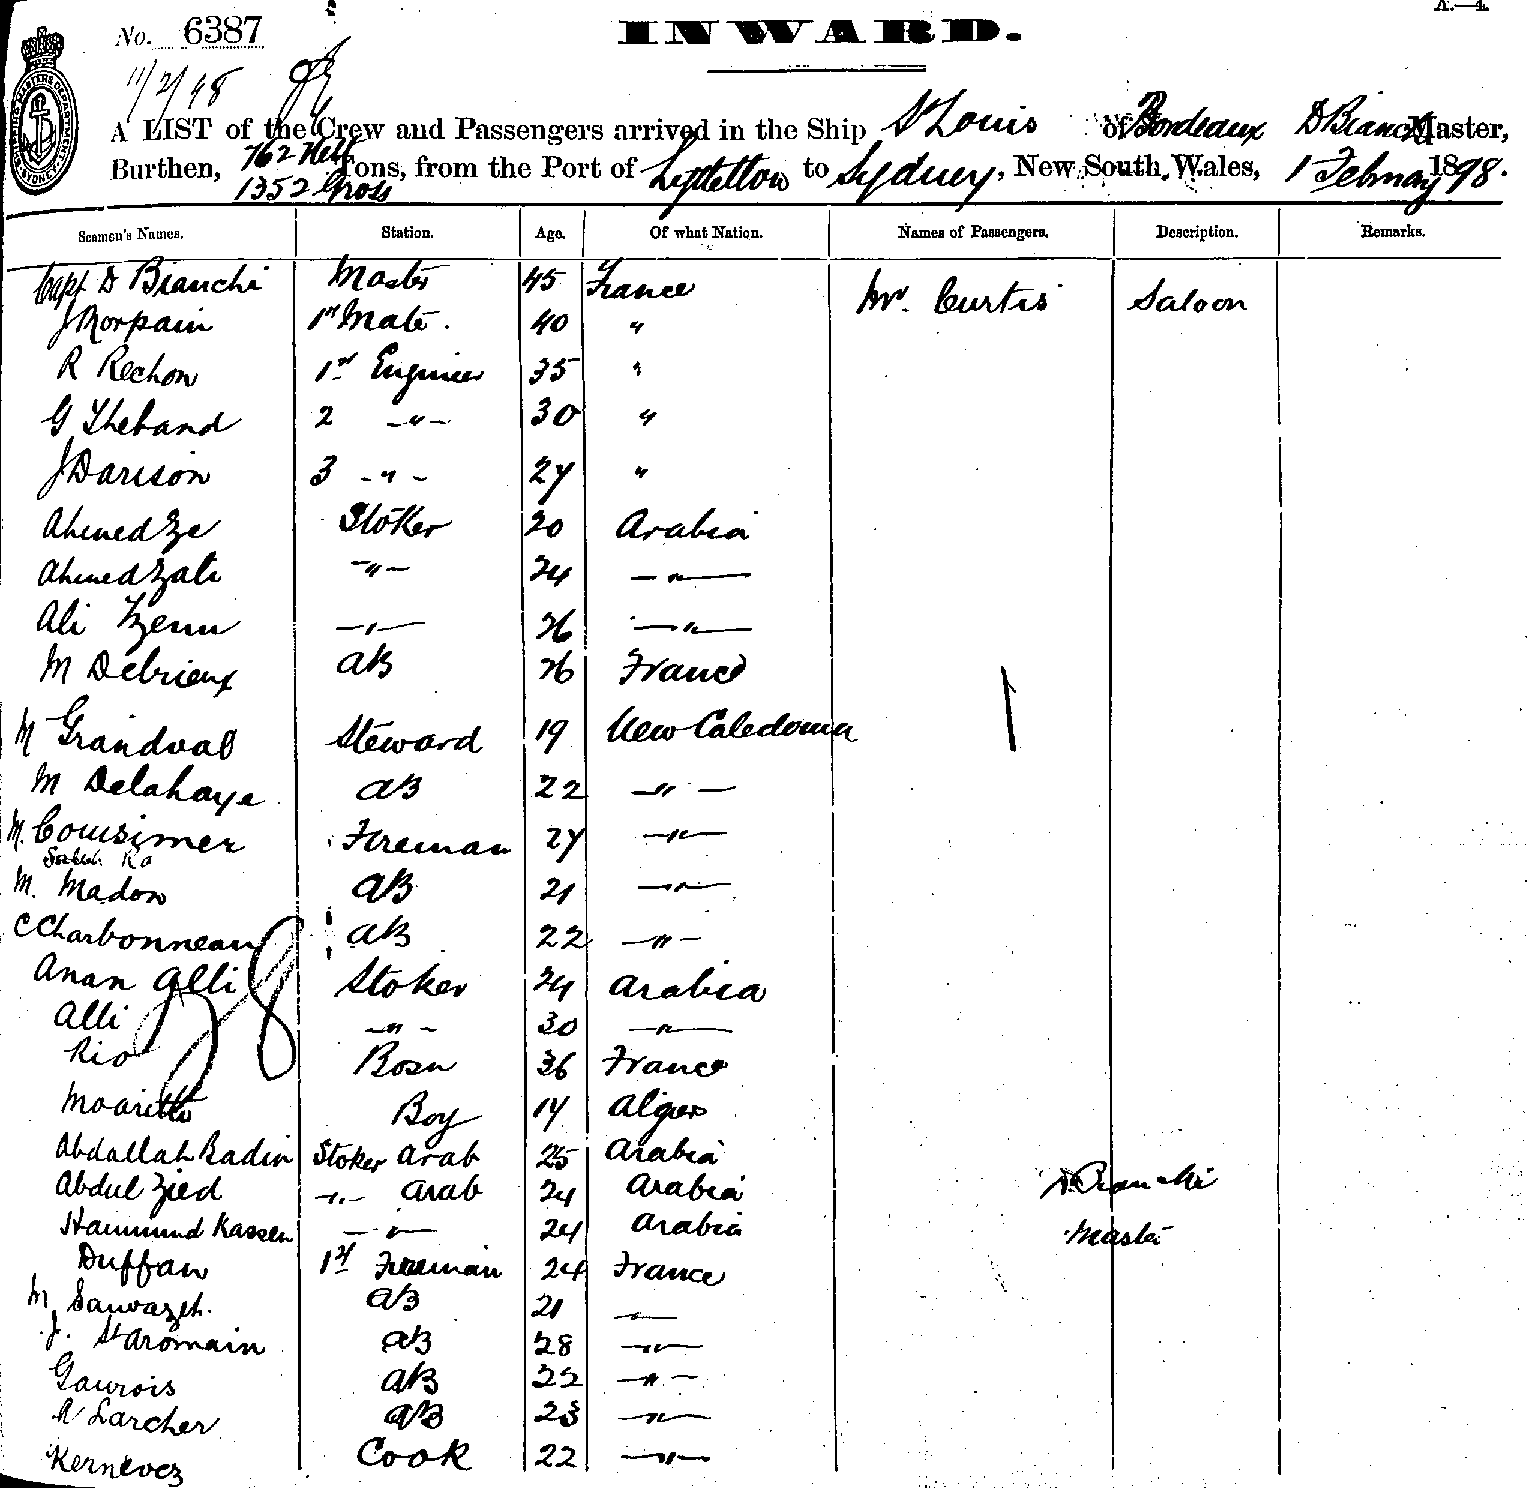 A.—4.
No. 6387
INWARD.
11/2/98
A LIST of the Crew and Passengers arrived in the Ship St Louis of Bordeaux D Bianchi Master,
Burthen, 762 Nett Tons, from the Port of Lyttelton to Sydney, New South Wales, 1 February 1898.
1352 Gross
Seamen's Names. Station. Age. Of what Nation. Names of Passengers. Description. Remarks.
Capt D Bianchi Master 45 France Mr. Curtis Saloon
J Rorpain 1st Mate. 40 "
R Rechon 1st Engineer 35 "
G Theband 2 -"- 30 "
J Darison 3 -"- 27 "
Ahmed Ze Stoker 20 Arabia
Ahmed Zali -"- 24 -"-
Ali Zenu -"- 26 -"-
M Debrieux AB 26 France
M Grandval Steward 19 New Caledonia
M Delahaye AB 22 -"-
M. Coursimer Fireman 27 -"-
M. Madon AB 21 -"-
C Charbonneau AB 22 -"-
Anan Alli Stoker 24 Arabia
Alli -"- 30 -"-
Rio Bosn 36 France
Moaritti Boy 14 Alger
Abdallah Badin Stoker Arab 25 Arabia
Abdul Zied -"- Arab 24 Arabia D Bianchi
Hammund Kassen -"- 24 Arabia Master
Duffan 1st Fireman 24 France
M AB 21 -"-
J. St Aromain AB 28 -"-
Gaurois AB 22 -"-
A Larcher AB 23 -"-
Kernevez Cook 22 -"-